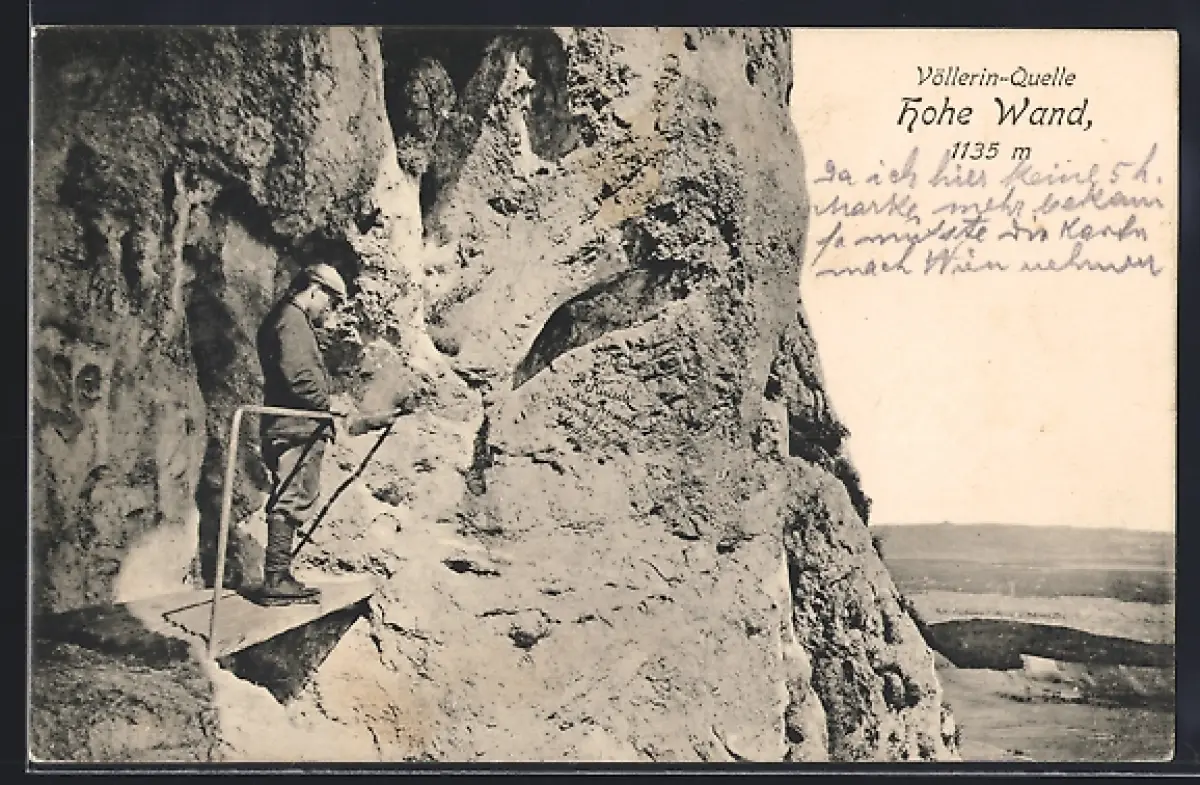 Völlerin-Quelle
Hohe Wand,
1135 m
Da ich hier keine 5 h.
Marke mehr bekam
so musste die Karte
nach Wien nehmen